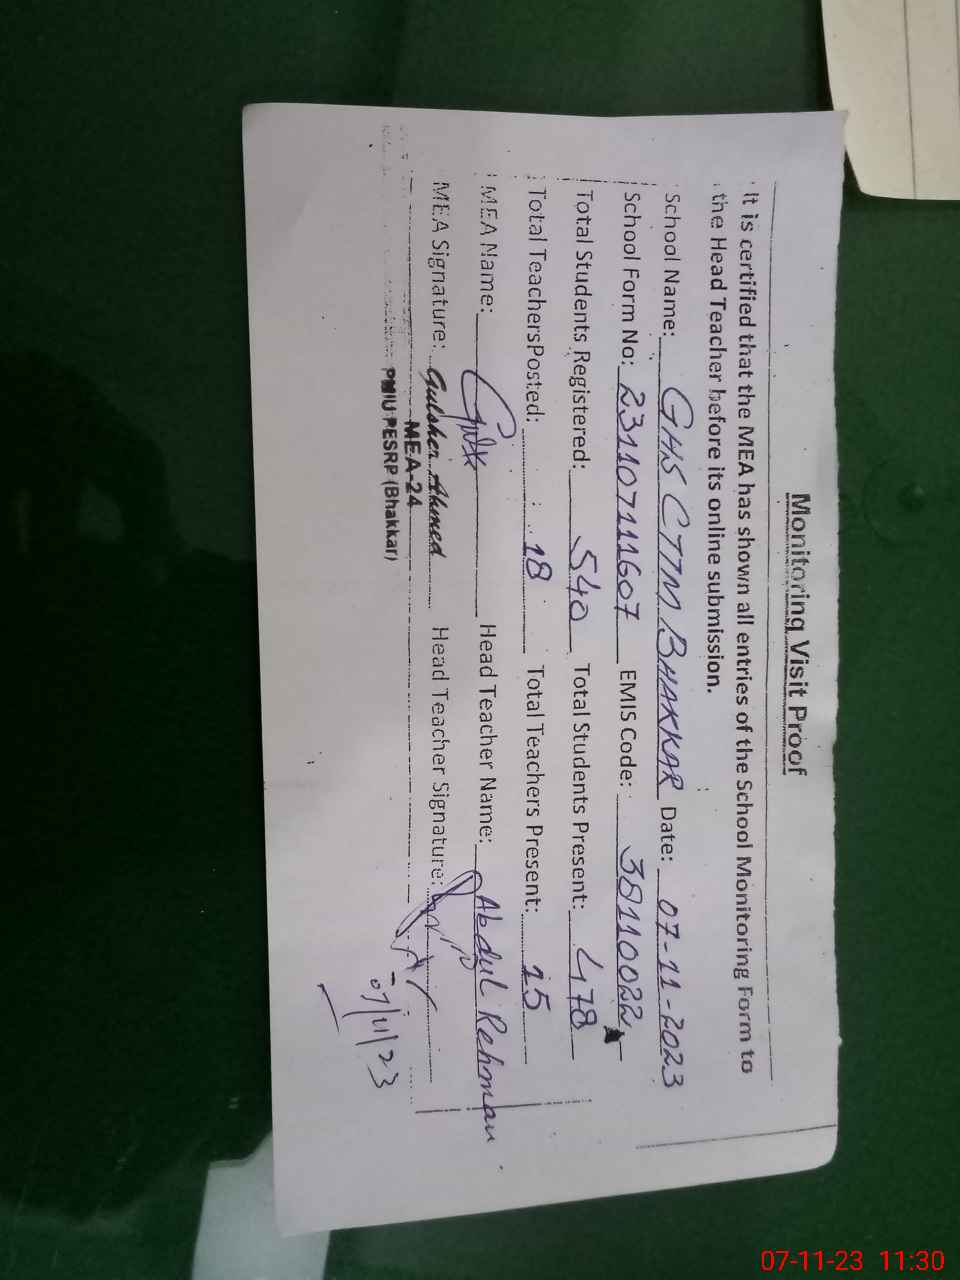 Monitoring Visit Proof
It is certified that the MEA has shown all entries of the School Monitoring Form to
the Head Teacher before its online submission.
School Name: GHS CTTM BHAKKAR Date: 07-11-2023
School Form No: 231107111607 EMIS Code: 38110022
Total Students Registered: 540 Total Students Present: 478
Total TeachersPosted: 18 Total Teachers Present: 15
MEA Name: Head Teacher Name: Abdul Rehman
MEA Signature: Gulsher Ahmed Head Teacher Signature:
MEA-24
PMIU PESRP (Bhakkar)
07/11/23
07-11-23 11:30